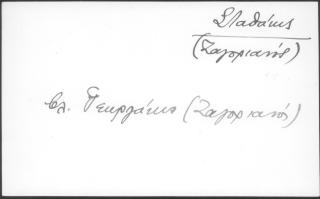 Σταθάκης
(Ζαγοριανός)
βλ. Γεωργάκης (Ζαγοριανός)